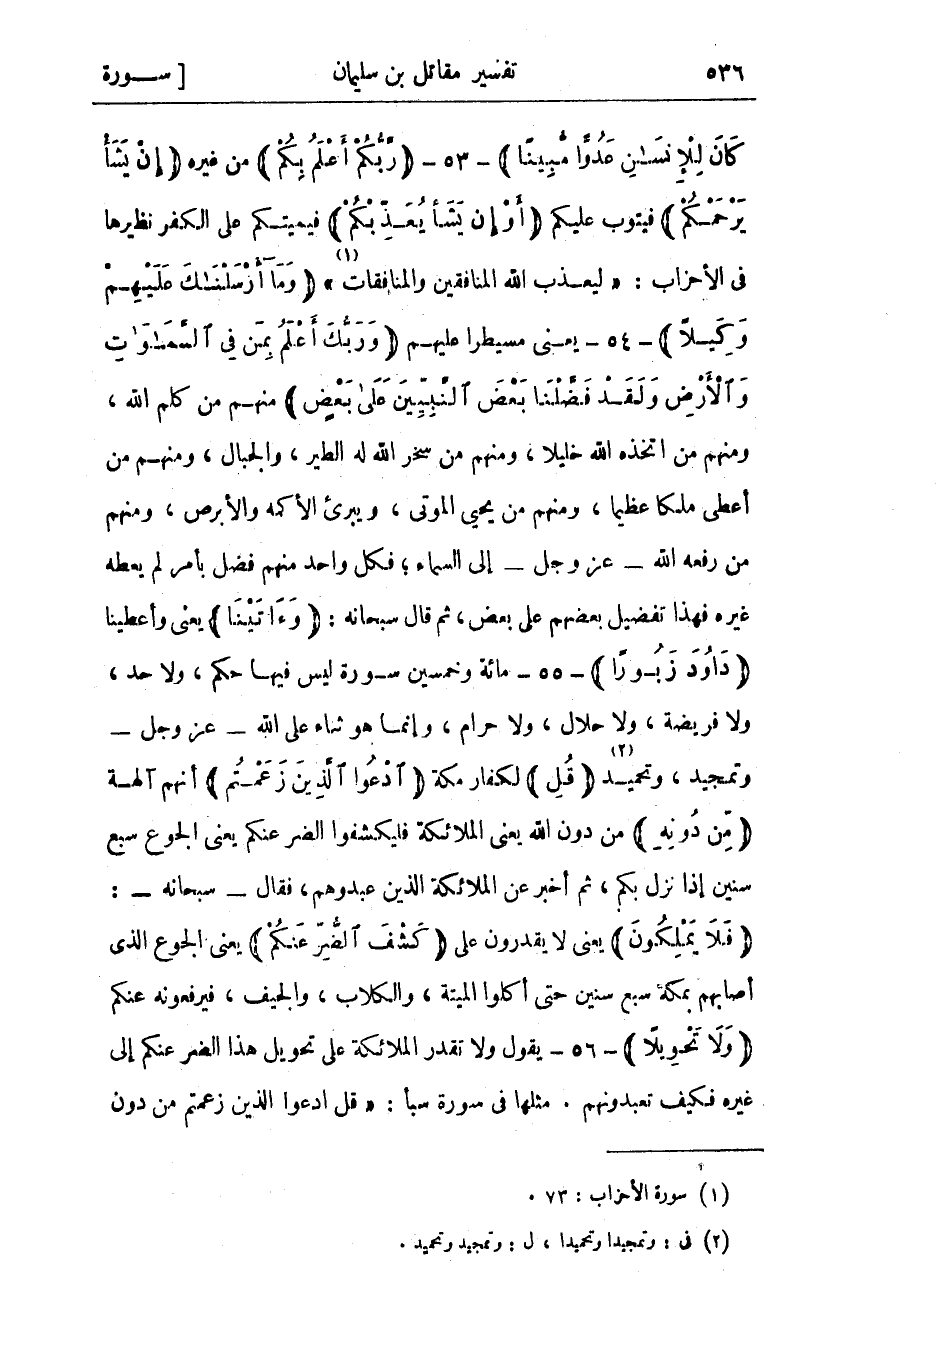 ٥٣٦ تفسير مقاتل بن سليمان [ ســـورة
كَانَ لِلْإِنسَـٰنِ عَدُوًّا مُّبِينًا ﴾ - ٥٣ - ﴿ رَّبُّكُمْ أَعْلَمُ بِكُمْ ﴾ من غيره ﴿ إِنْ يَشَأْ
يَرْحَمْـكُمْ ﴾ فيتوب عليكم ﴿ أَوْ إِن يَشَأْ يُعَـذِّبْكُمْ ﴾ فيميتـكم على الكفر نظيرها
فى الأحزاب : « ليعـذب الله المنافقين والمنافقات » (١) ﴿ وَمَآ أَرْسَلْنَـٰكَ عَلَيْهِـمْ
وَكِيـلًا ﴾ - ٥٤ - يعـنى مسيطرا عليهـم ﴿ وَرَبُّكَ أَعْلَمُ بِمَن فِى ٱلسَّمَـٰوَٰتِ
وَٱلْأَرْضِ وَلَقَـدْ فَضَّلْنَا بَعْضَ ٱلنَّبِيِّينَ عَلَىٰ بَعْضٍ ﴾ منهـم من كلم الله ،
ومنهم من اتخذه الله خليلا ، ومنهم من سخر الله له الطير ، والجبال ، ومنهـم من
أعطى ملكا عظيما ، ومنهم من يحيي الموتى ، ويبرئ الأكمه والأبرص ، ومنهم
من رفعه الله – عز وجل – إلى السماء ؛ فكل واحد منهم فضل بأمر لم يعطه
غيره فهذا تفضيل بعضهم على بعض ، ثم قال سبحانه : ﴿ وَءَاتَيْنَا ﴾ يعنى وأعطينا
﴿ دَاوُدَ زَبُـورًا ﴾ - ٥٥ - مائة وخمسين سـورة ليس فيهـا حكم ، ولا حد ،
ولا فريضة ، ولا حلال ، ولا حرام ، وإنمـا هو ثناء على الله – عز وجل –
وتمجيد ، وتحميـد (٢) ﴿ قُلِ ﴾ لكفار مكة ﴿ ٱدْعُوا ٱلَّذِينَ زَعَمْـتُم ﴾ أنهم آلهـة
﴿ مِّن دُونِهِ ﴾ من دون الله يعنى الملائكة فليكشفوا الضر عنكم يعنى الجوع سبع
سنين إذا نزل بكم ، ثم أخبر عن الملائكة الذين عبدوهم ، فقال – سبحانه – :
﴿ فَلَا يَمْلِكُونَ ﴾ يعنى لا يقدرون على ﴿ كَشْفَ ٱلضُّرِّ عَنكُمْ ﴾ يعنى الجوع الذى
أصابهم بمكة سبع سنين حتى أكلوا الميتة ، والكلاب ، والجيف ، فيرفعونه عنكم
﴿ وَلَا تَحْوِيلًا ﴾ - ٥٦ - يقول ولا تقدر الملائكة على تحويل هذا الضر عنكم إلى
غيره فكيف تعبدونهم . مثلها فى سورة سبأ : « قل ادعوا الذين زعمتم من دون
(١) سورة الأحزاب : ٧٣ .
(٢) فى : وتمجيدا وتحميدا ، ل : وتمجيد وتحميد .